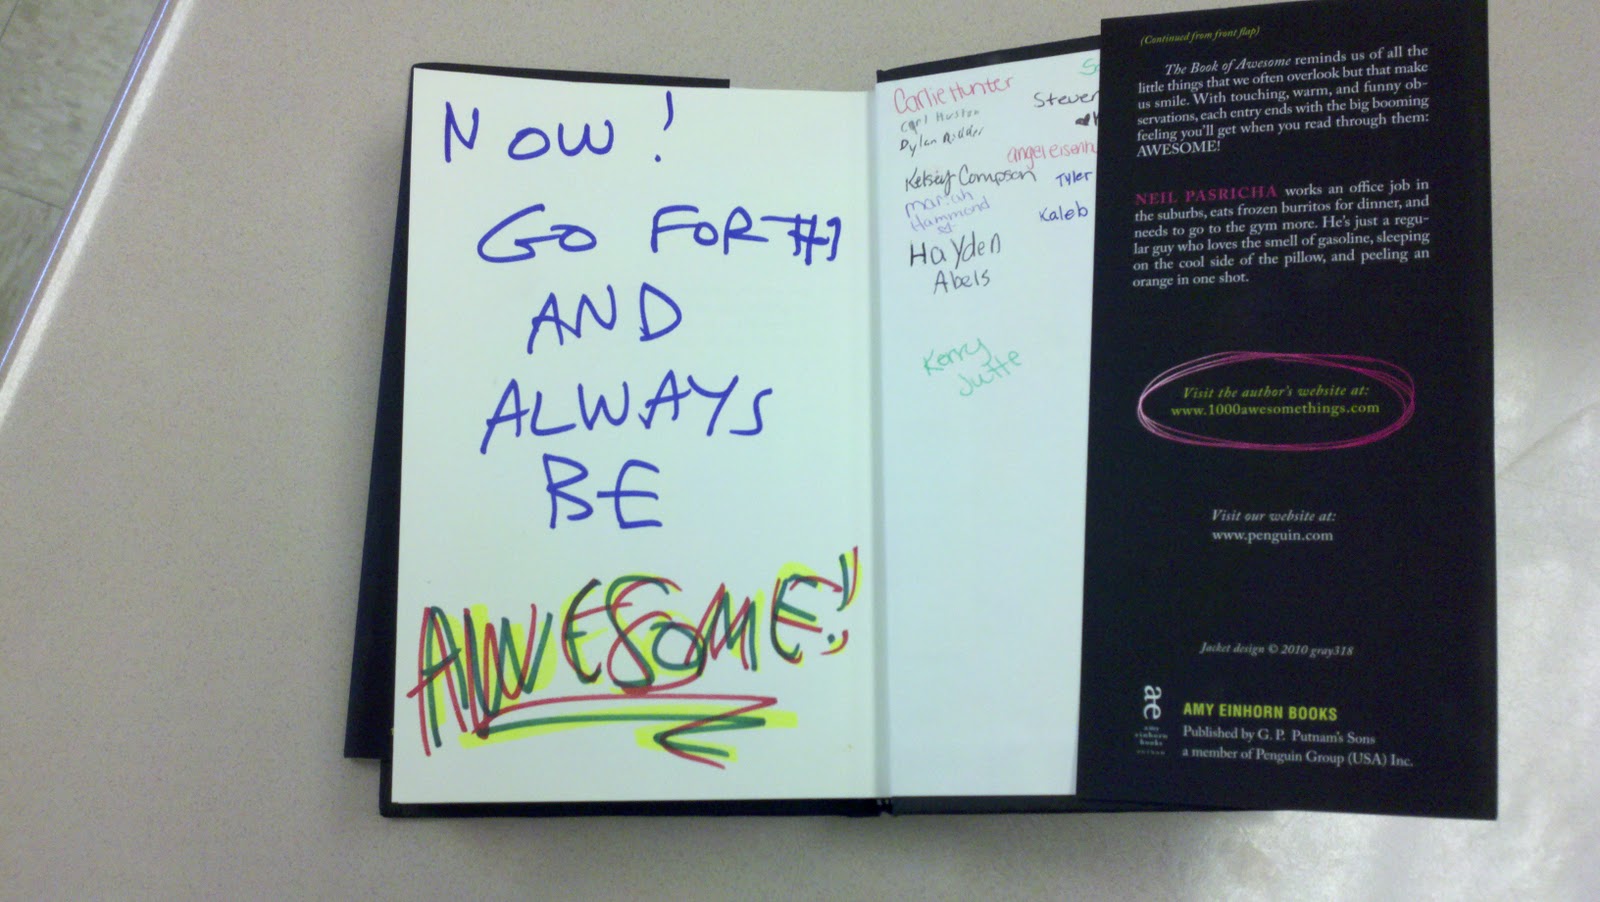 NOW!
GO FOR #1
AND
ALWAYS
BE
AWESOME!!
Carlie Hunter
Carl Huston
Dylan
Kelsey Compson
mariah
Hammond
Hayden
Abels
Kerry
Jutte
Steven
angel eisenh
Tyler
Kaleb
(Continued from front flap)
The Book of Awesome reminds us of all the
little things that we often overlook but that make
us smile. With touching, warm, and funny ob-
servations, each entry ends with the big booming
feeling you'll get when you read through them:
AWESOME!
NEIL PASRICHA works an office job in
the suburbs, eats frozen burritos for dinner, and
needs to go to the gym more. He's just a regu-
lar guy who loves the smell of gasoline, sleeping
on the cool side of the pillow, and peeling an
orange in one shot.
Visit the author's website at:
www.1000awesomethings.com
Visit our website at:
www.penguin.com
Jacket design © 2010 gray318
ae
amy
einhorn
books
PUTNAM
AMY EINHORN BOOKS
Published by G. P. Putnam's Sons
a member of Penguin Group (USA) Inc.